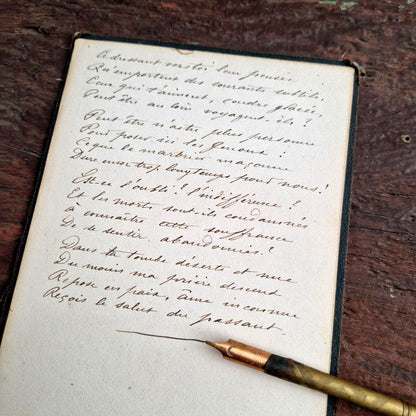 Adressant vers toi leur pensée
Qu'emportent des courants subtils,
Ceux qui s'aiment, cendre glacée,
Peut être au loin voyagent-ils?
Peut être n'as-tu plus personne
Pour poser ici les genoux!
Ce que le marbrier maçonne
Dure encor trop longtemps pour nous!
Est-ce l'oubli? l'indifférence?
Et les morts sont-ils condamnés
à connaître cette souffrance
De se sentir abandonnés!
Dans ta tombe déserte et nue
Du moins ma prière descend
Repose en paix, âme inconnue
Reçois le salut du passant.